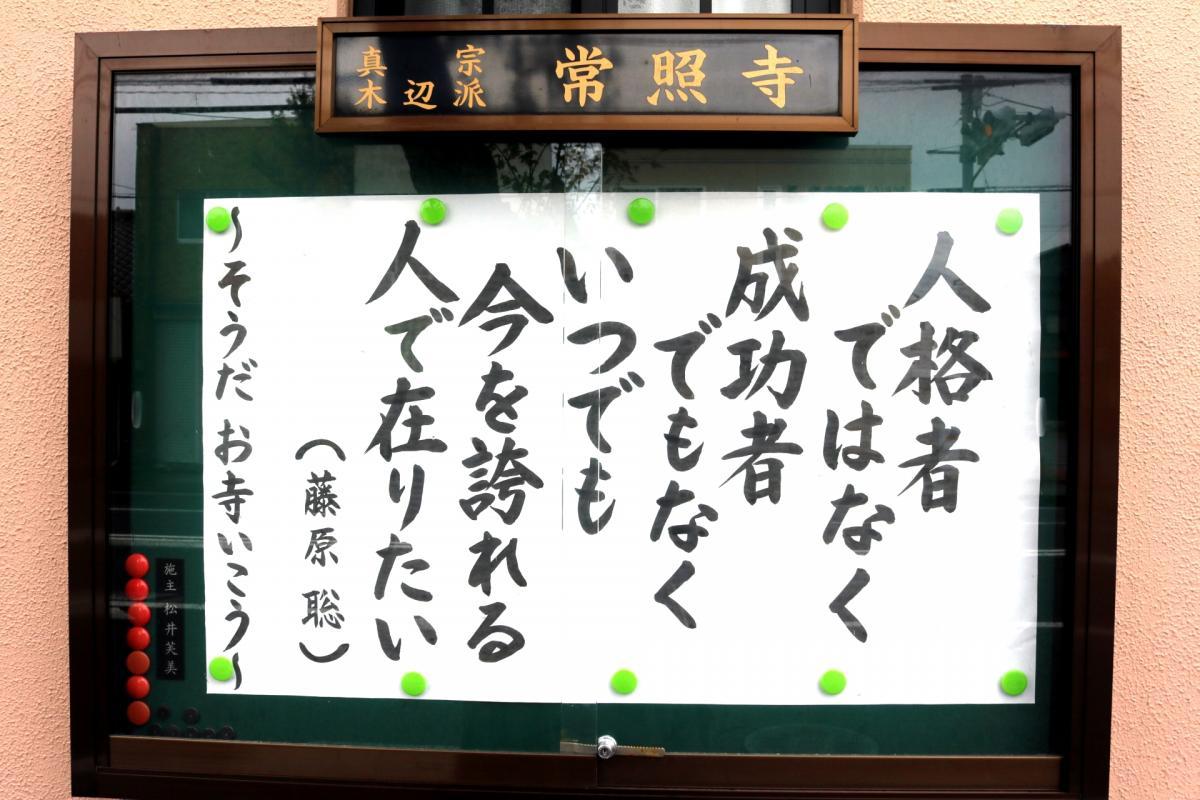 真宗
木辺派
常照寺
人格者
ではなく
成功者
でもなく
いつでも
今を誇れる
人で在りたい
（藤原 聡）
～そうだ お寺いこう～
施主 松井芙美